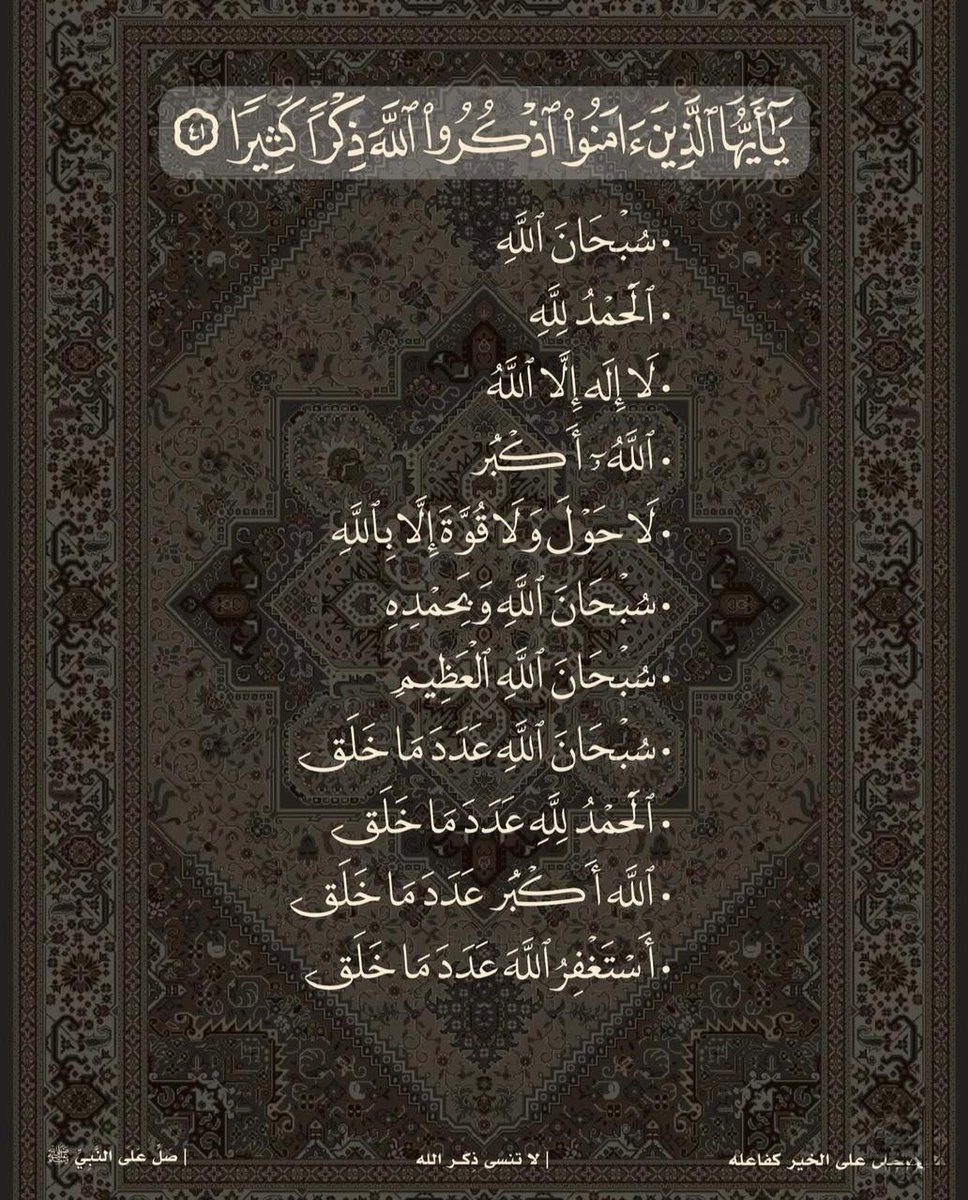 يَٰٓأَيُّهَا ٱلَّذِينَ ءَامَنُوا۟ ٱذْكُرُوا۟ ٱللَّهَ ذِكْرًا كَثِيرًا ٤١
• سُبْحَانَ ٱللَّهِ
• ٱلْحَمْدُ لِلَّهِ
• لَا إِلَه إِلَّا ٱللَّهُ
• ٱللَّهُ أَكْبَُر
• لَا حَوْلَ وَلَا قُوَّةَ إِلَّا بِٱللَّهِ
• سُبْحَانَ ٱللَّهِ وَبِحَمْدِهِ
• سُبْحَانَ ٱللَّهِ ٱلْعَظِيمِ
• سُبْحَانَ ٱللَّهِ عَدَدَ مَا خَلَق
• ٱلْحَمْدُ لِلَّهِ عَدَدَ مَا خَلَق
• ٱللَّه أَكْبَُر عَدَدَ مَا خَلَق
• أَسْتَغْفِرُ ٱللَّهَ عَدَدَ مَا خَلَق
على الخير كفاعله | لا تنسى ذكر الله | صَلِّ عَلى النَّبِيّ ﷺ